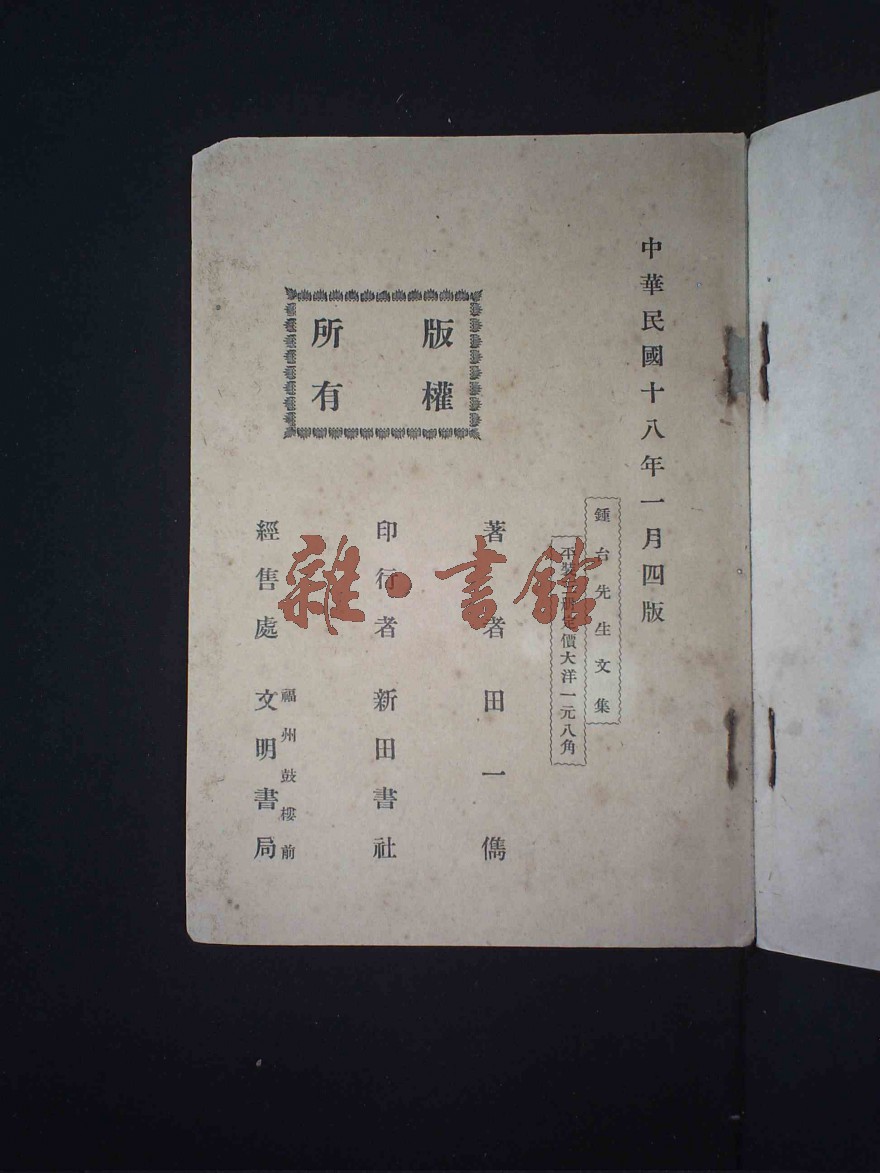 中華民國十八年一月四版
鍾台先生文集
平裝 定價大洋一元八角
版權
所有
著者 田一儁
印行者 新田書社
經售處 文明書局
福州鼓樓前
雜·書館